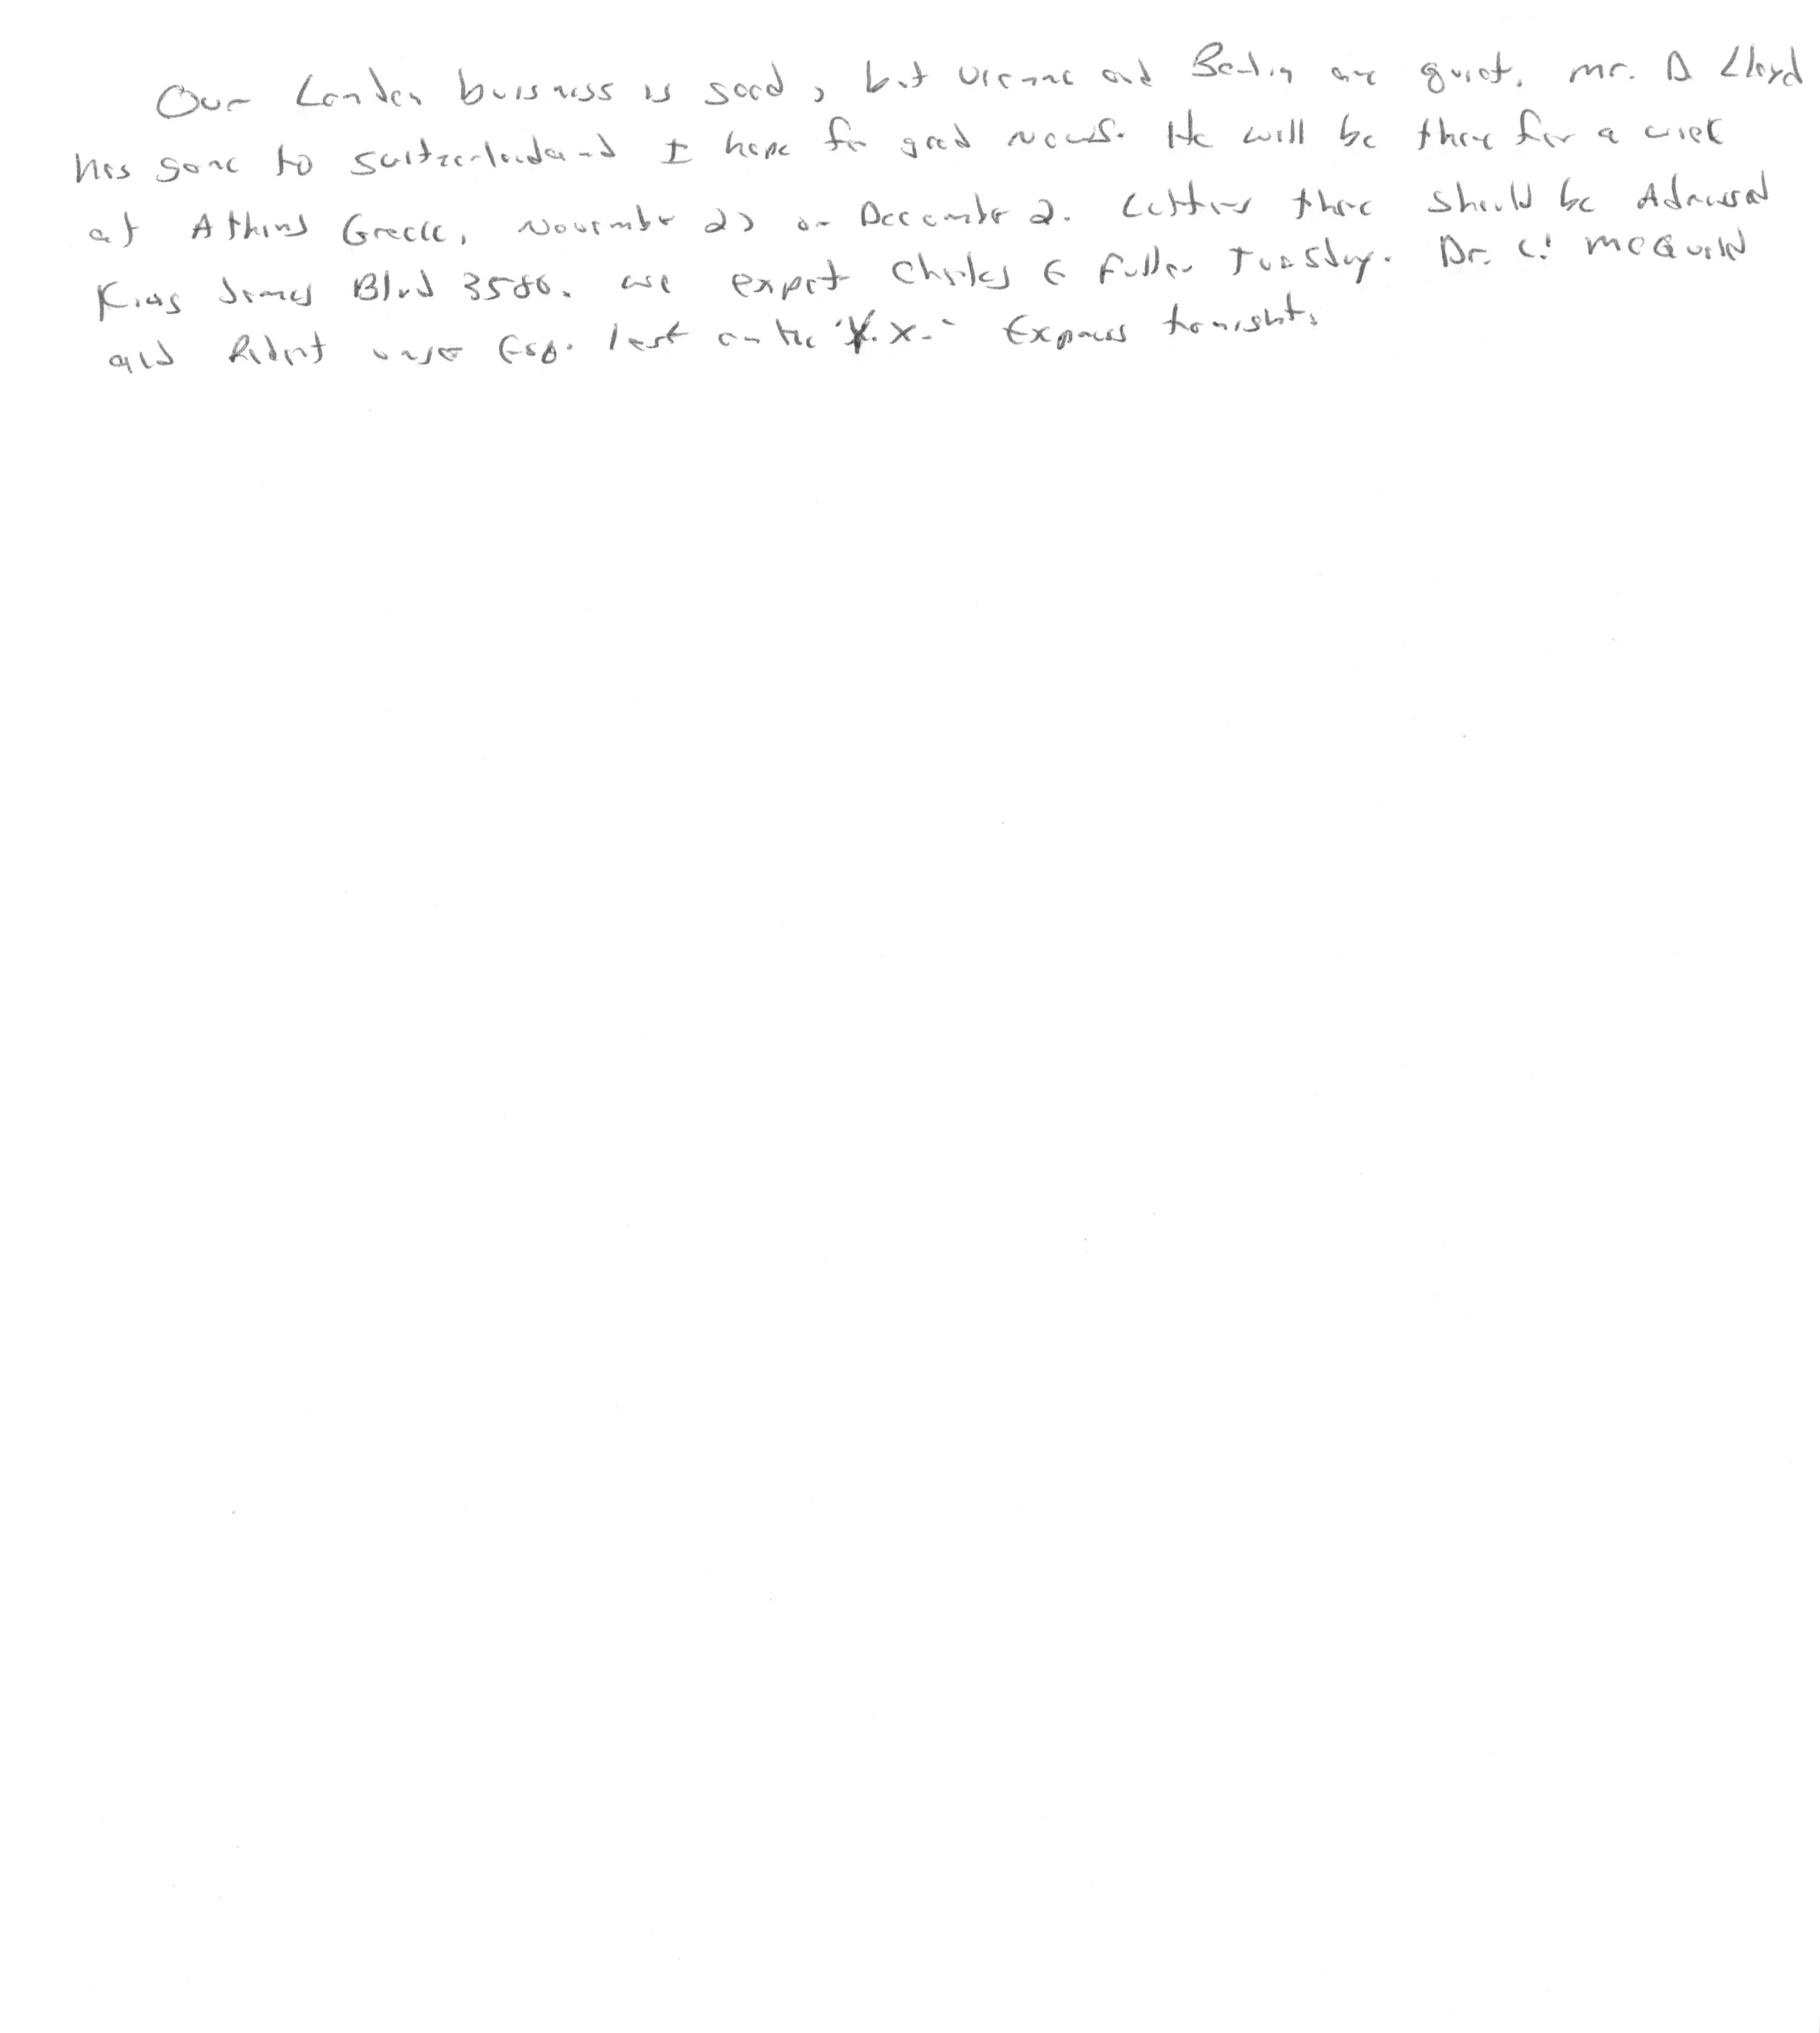 Our London buisness is good, but Vienna and Berlin are quiet. Mr. D Lloyd
has gone to Switzerland and I hope for good news. He will be there for a week
at Athens Greece, November 27 or December 2. Letters there should be Adressed
King James Blvd 3580. we expect Charles E Fuller Tuesday. Dr. L! McQuaid
and Robert Esq. left on the "Y.X." Express tonight.